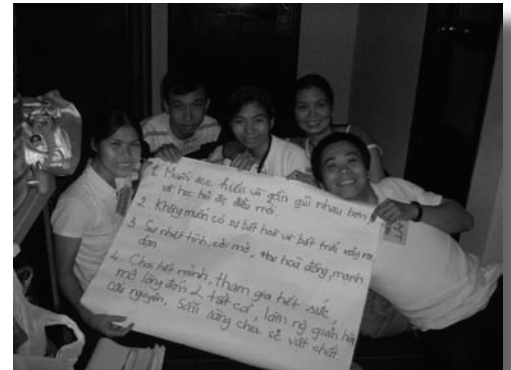 1. Muốn ace hiểu và gần gũi nhau hơn,
và học hỏi đc điều mới.
2. Không muốn có sự bất hoà và bất trắc xảy ra
3. Sự nhiệt tình, cởi mở, hoà đồng, mạnh
dạn
4. Chơi hết mình, tham gia hết sức,
mở lòng đón tất cả, làm ng quản
cầu nguyện. Sẵn sàng chia sẻ vật chất.